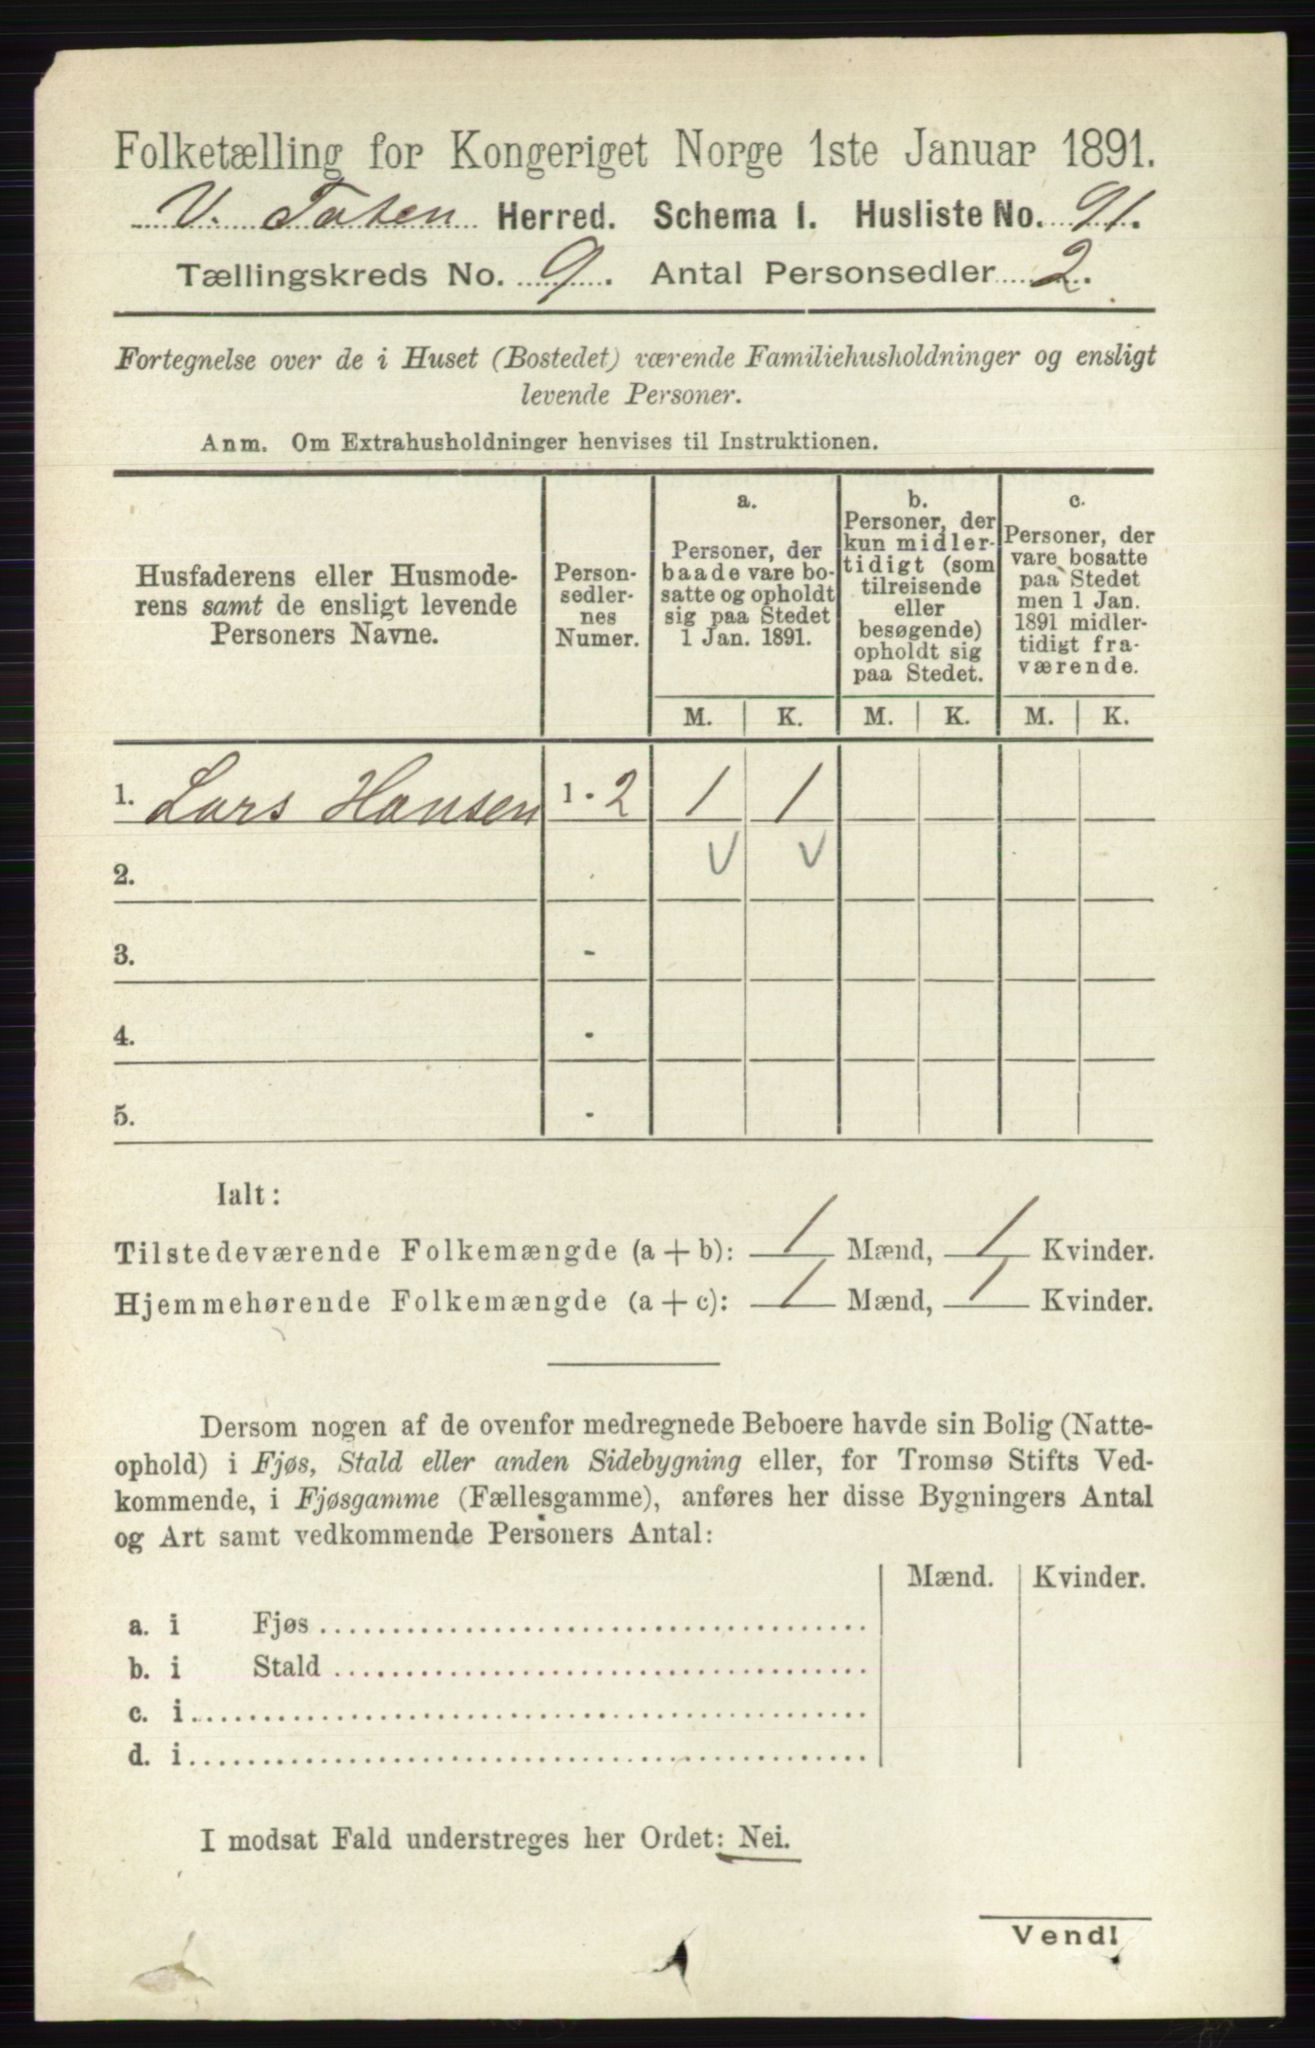 Folketælling for Kongeriget Norge 1ste Januar 1891.
V. Toten Herred. Schema I. Husliste No. 91.
Tællingskreds No. 9. Antal Personsedler 2.
Fortegnelse over de i Huset (Bostedet) værende Familiehusholdninger og ensligt
levende Personer.
Anm. Om Extrahusholdninger henvises til Instruktionen.
Husfaderens eller Husmode-
rens samt de ensligt levende
Personers Navne.
Person-
sedler-
nes
Numer.
a.
Personer, der
baade vare bo-
satte og opholdt
sig paa Stedet
1 Jan. 1891.
b.
Personer, der
kun midler-
tidigt (som
tilreisende
eller
besøgende)
opholdt sig
paa Stedet.
c.
Personer, der
vare bosatte
paa Stedet
men 1 Jan.
1891 midler-
tidigt fra-
værende.
M. K. M. K. M. K.
1. Lars Hansen 1 - 2 1 1
2. V V
3. -
4. -
5. -
Ialt:
Tilstedeværende Folkemængde (a + b): 1 Mænd, 1 Kvinder.
Hjemmehørende Folkemængde (a + c): 1 Mænd, 1 Kvinder.
Dersom nogen af de ovenfor medregnede Beboere havde sin Bolig (Natte-
ophold) i Fjøs, Stald eller anden Sidebygning eller, for Tromsø Stifts Ved-
kommende, i Fjøsgamme (Fællesgamme), anføres her disse Bygningers Antal
og Art samt vedkommende Personers Antal:
Mænd. Kvinder.
a. i Fjøs
b. i Stald
c. i
d. i
I modsat Fald understreges her Ordet: Nei.
Vend!